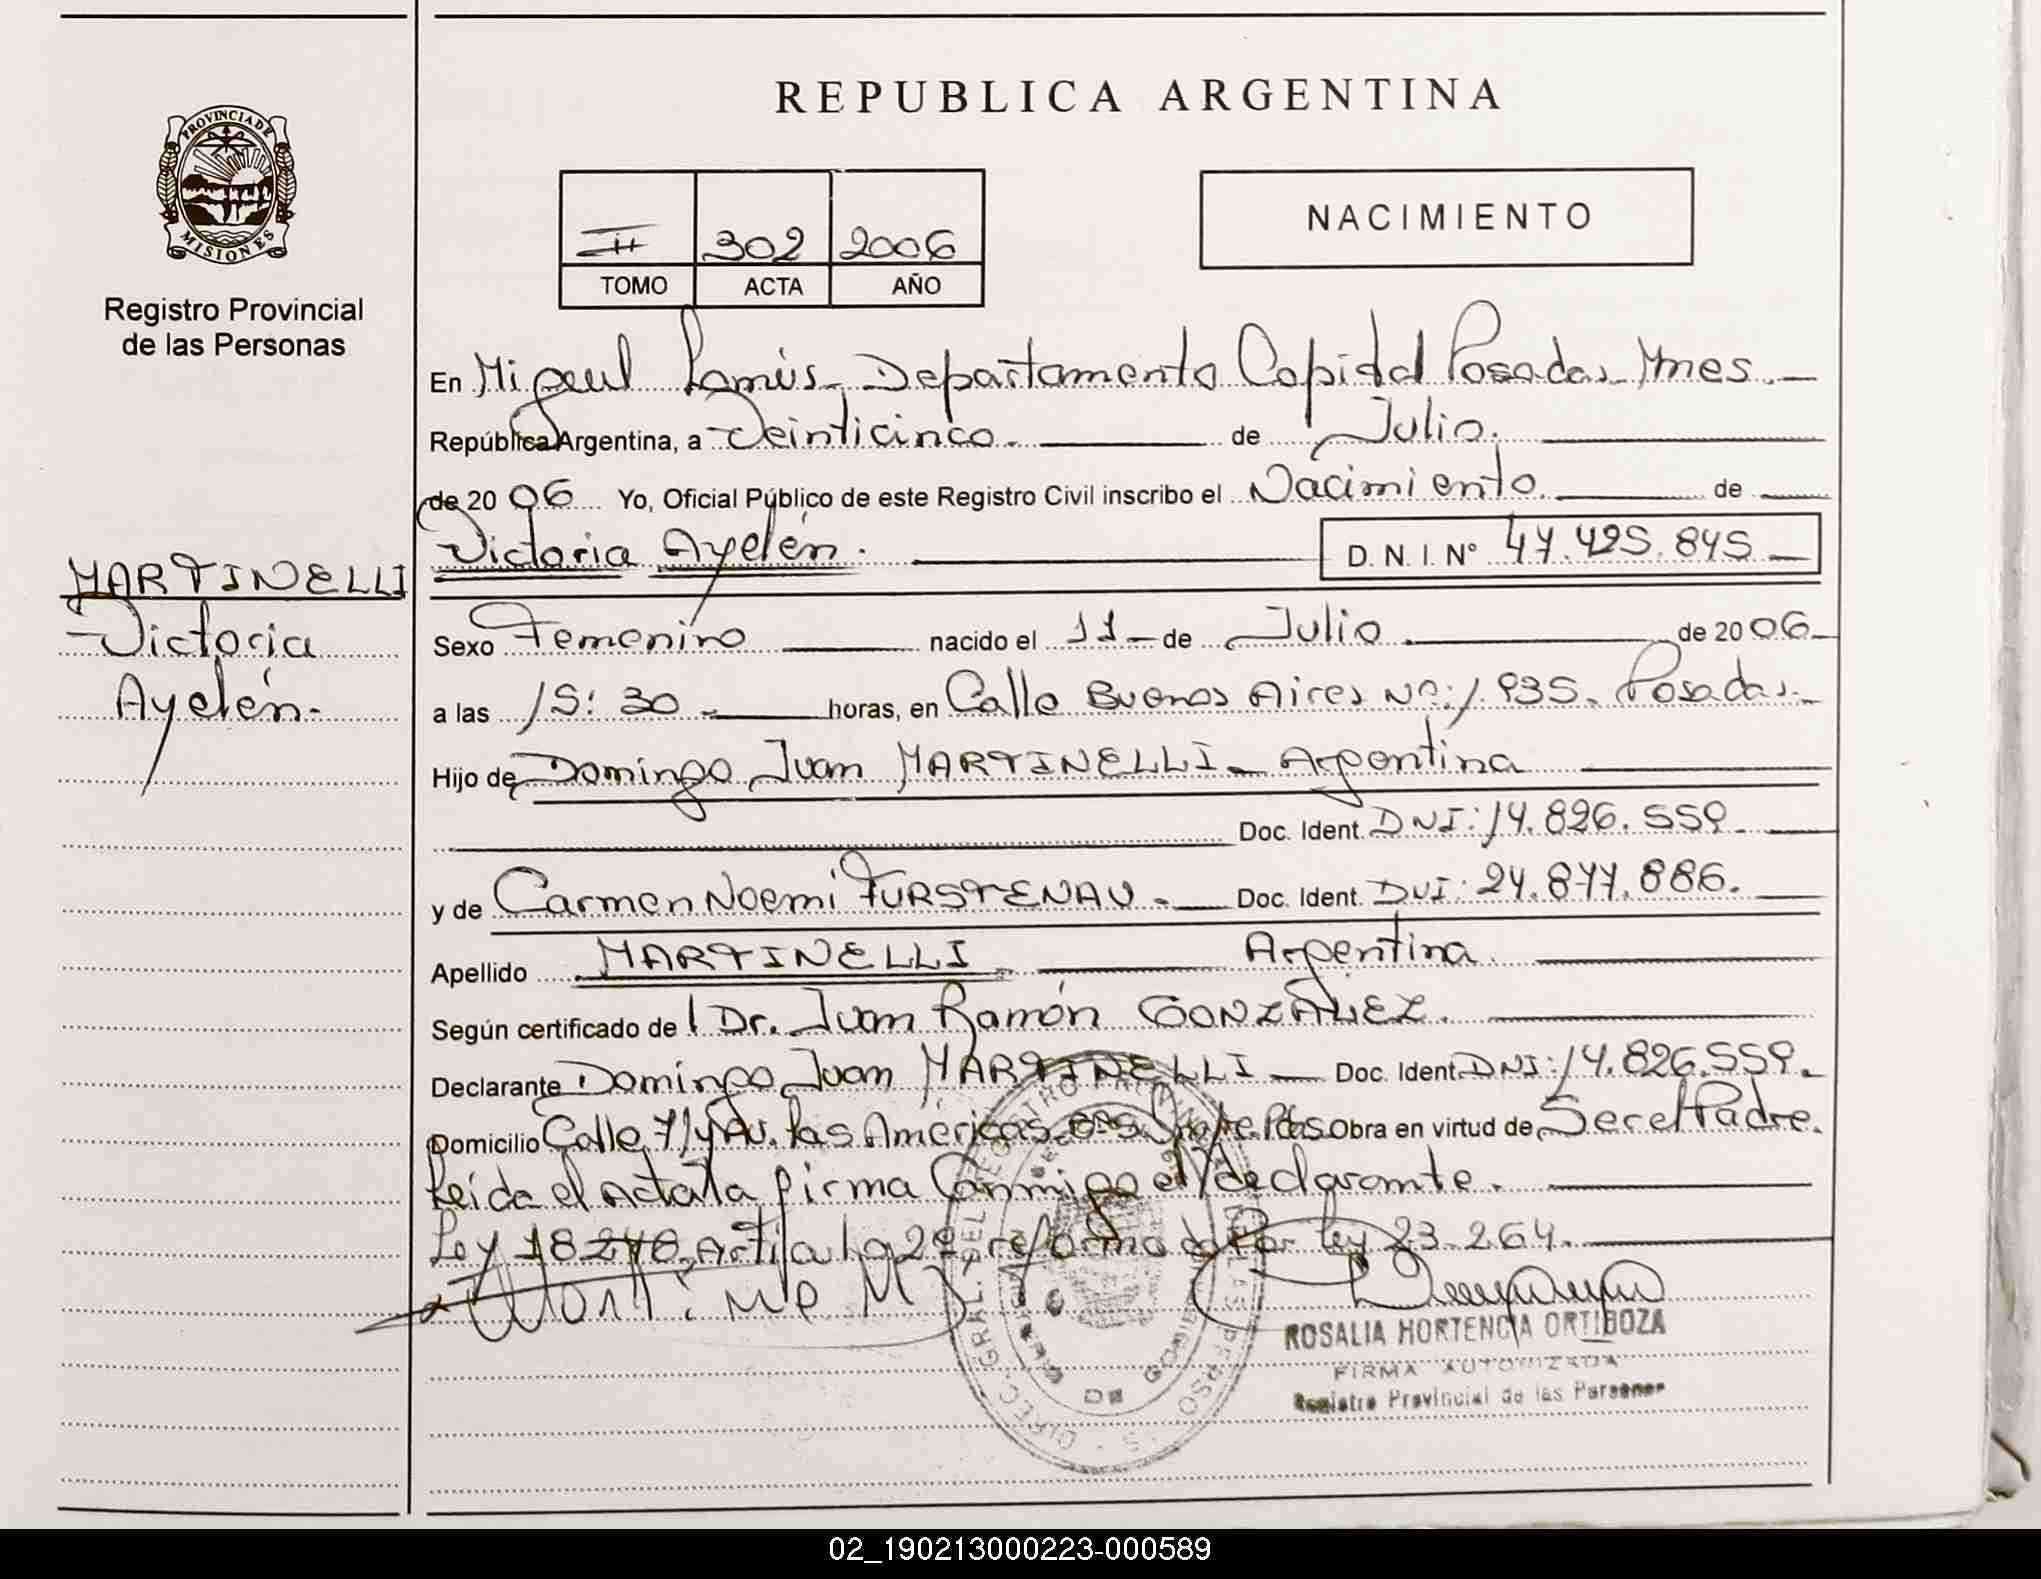 REPUBLICA ARGENTINA
PROVINCIA DE
MISIONES
Registro Provincial
de las Personas
II 302 2006
TOMO ACTA AÑO
NACIMIENTO
En Miguel Lanús Departamento Capital Posadas Mnes.
República Argentina, a Veinticinco. de Julio.
de 2006 Yo, Oficial Público de este Registro Civil inscribo el Nacimiento de
Victoria Ayelén. D. N. I. Nº 47.425.845
MARTINELLI
Victoria
Ayelén.
Sexo Femenino nacido el 11 de Julio. de 2006
a las 15:30 horas, en Calle Buenos Aires Nº: 1.935. Posadas.
Hijo de Domingo Juan MARTINELLI Argentina
Doc. Ident. DNI: 14.826.559
y de Carmen Noemi FURSTENAU Doc. Ident. DNI: 24.877.886.
Apellido MARTINELLI Argentina
Según certificado de Dr. Juan Ramón GONZÁLEZ.
Declarante Domingo Juan MARTINELLI Doc. Ident. DNI: 14.826.559.
Domicilio Calle 71 y Av. las Américas Obra en virtud de Ser el Padre.
Leída el Acta la firma Conmigo el declarante.
Ley 18248 reforma por Ley 23.264.
ROSALIA HORTENCIA ORTIBOZA
FIRMA AUTORIZADA
Registro Provincial de las Personas
02_190213000223-000589